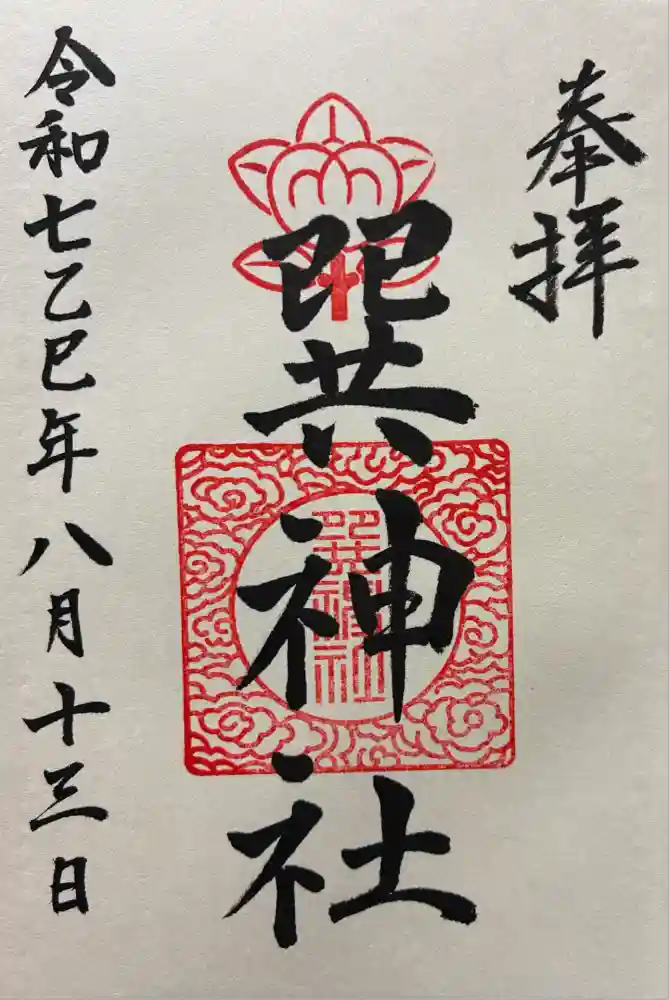 奉拝
巽神社
巽神社
令和七乙巳年八月十三日